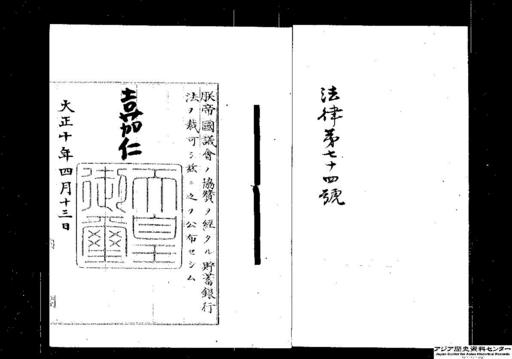 法律第七十四號
朕帝國議會ノ協贊ヲ經タル貯蓄銀行
法ヲ裁可シ玆ニ之ヲ公布セシム
嘉仁
天皇御璽
大正十年四月十三日
アジア歴史資料センター
Japan Center for Asian Historical Records